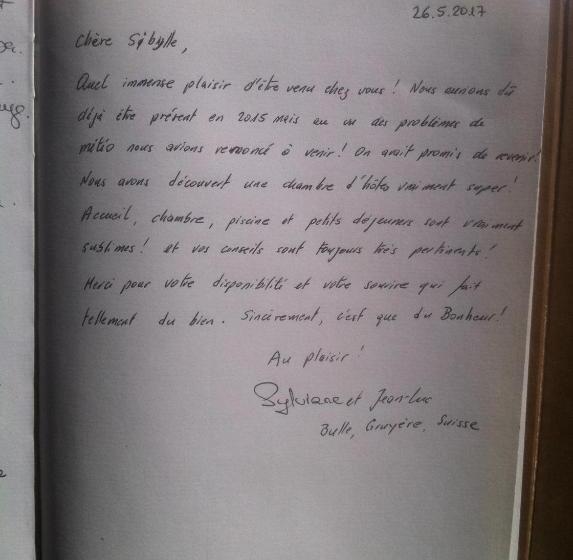 26.5.2017
Chère Sybylle,
Quel immense plaisir d'être venu chez vous ! Nous aurions dû
déjà être présent en 2015 mais au vu des problèmes de
météo nous avions renoncé à venir ! On avait promis de revenir !
Nous avons découvert une chambre d'hôtes vraiment super !
Accueil, chambre, piscine et petits déjeuners sont vraiment
sublimes ! et vos conseils sont toujours très pertinents !
Merci pour votre disponiblité et votre sourire qui fait
tellement du bien. Sincèrement, c'est que du Bonheur !
Au plaisir !
Sylviane et Jean-Luc
Bulle, Gruyère, Suisse